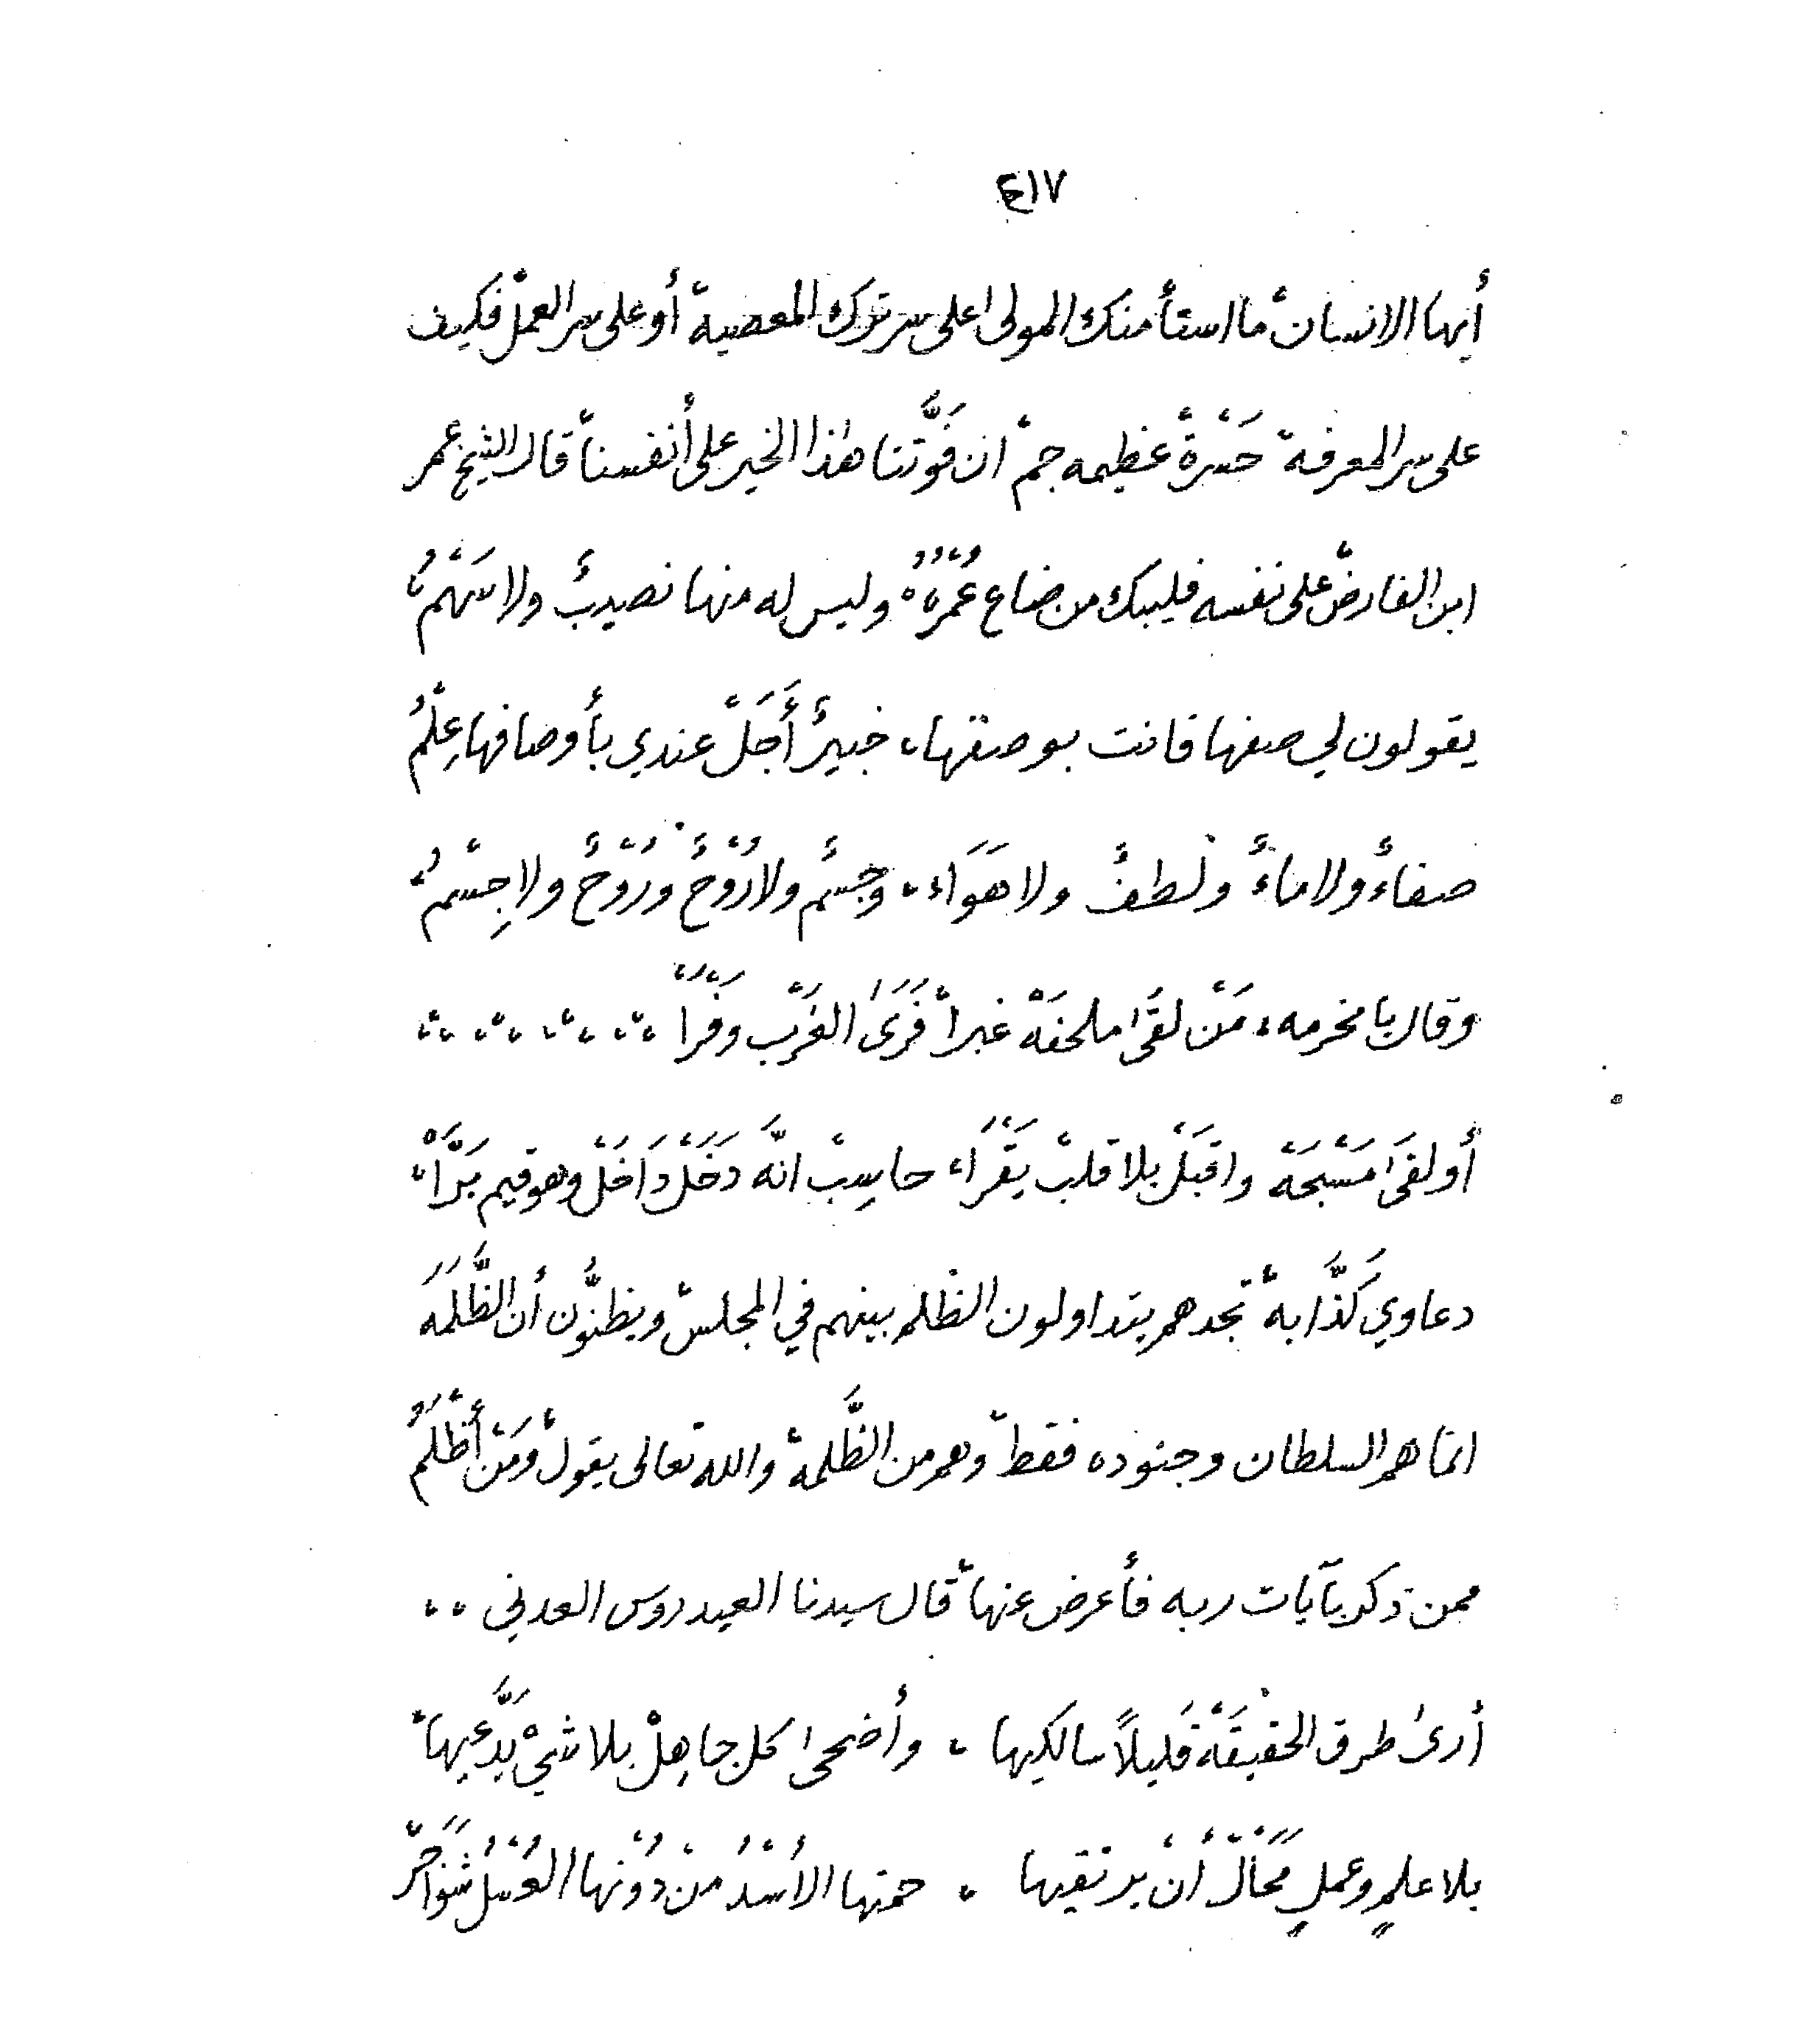 ٤١٧
أيها الانسان ما استأمنك المولى اعلى سر ترك المعصية أو على سر العمل فكيف
على سر المعرفة حَسْرةْ عظيمه جم ان فَوَّتنا هذا الخير على أنفسنا قال الشيخ عمر
ابن الفارض على نفسه فليبك من ضاع عُمْرُهُ وليس له منها نصيبٌ ولا سَهْمُ
يقولون لي صفها فانت بوصفها، خبيرٌ أَجَلْ عندي بأوصافها عِلْمُ
صفاءٌ ولا ماءٌ ولُطفٌ ولا هَوَاء، وجِسْمٌ ولا رُوْحٌ ورُوْحٌ ولا جِسْمُ
وقال بامخرمه، مَنْ لقَى ملحفَهْ غبرا فَرَى الغَرْب وفَرَّا
أو لقَى مَسْبَحَهْ واقبَلْ بلا قلبْ يَقْرَا، حاسِبْ انَّه دَخَلْ دَاخَلْ وهو قيم بَرَّا،
دعاوي كَذَّابهْ تجدهم يتداولون الظلم بينهم في المجلس ويظنُّون أن الظَّلَمَه
انما هم السلطان وجنوده فقط وهم من الظَّلمة والله تعالى يقول ومَنْ أَظْلَمُ
ممن ذكر بآيات ربه فأعرض عنها قال سيدنا العيدروس العدني
أرى طرق الحقيقَهْ قَليلاً سالكيها ، وأضحى كل جاهِلْ بلا شيْ يدَّعيها
بلا علمٍ وعملٍ مُحَالْ أنْ يرتقيها ، حمتها الأُسْدُ منْ دُوْنها العُسْلُ شَوَاجَرْ